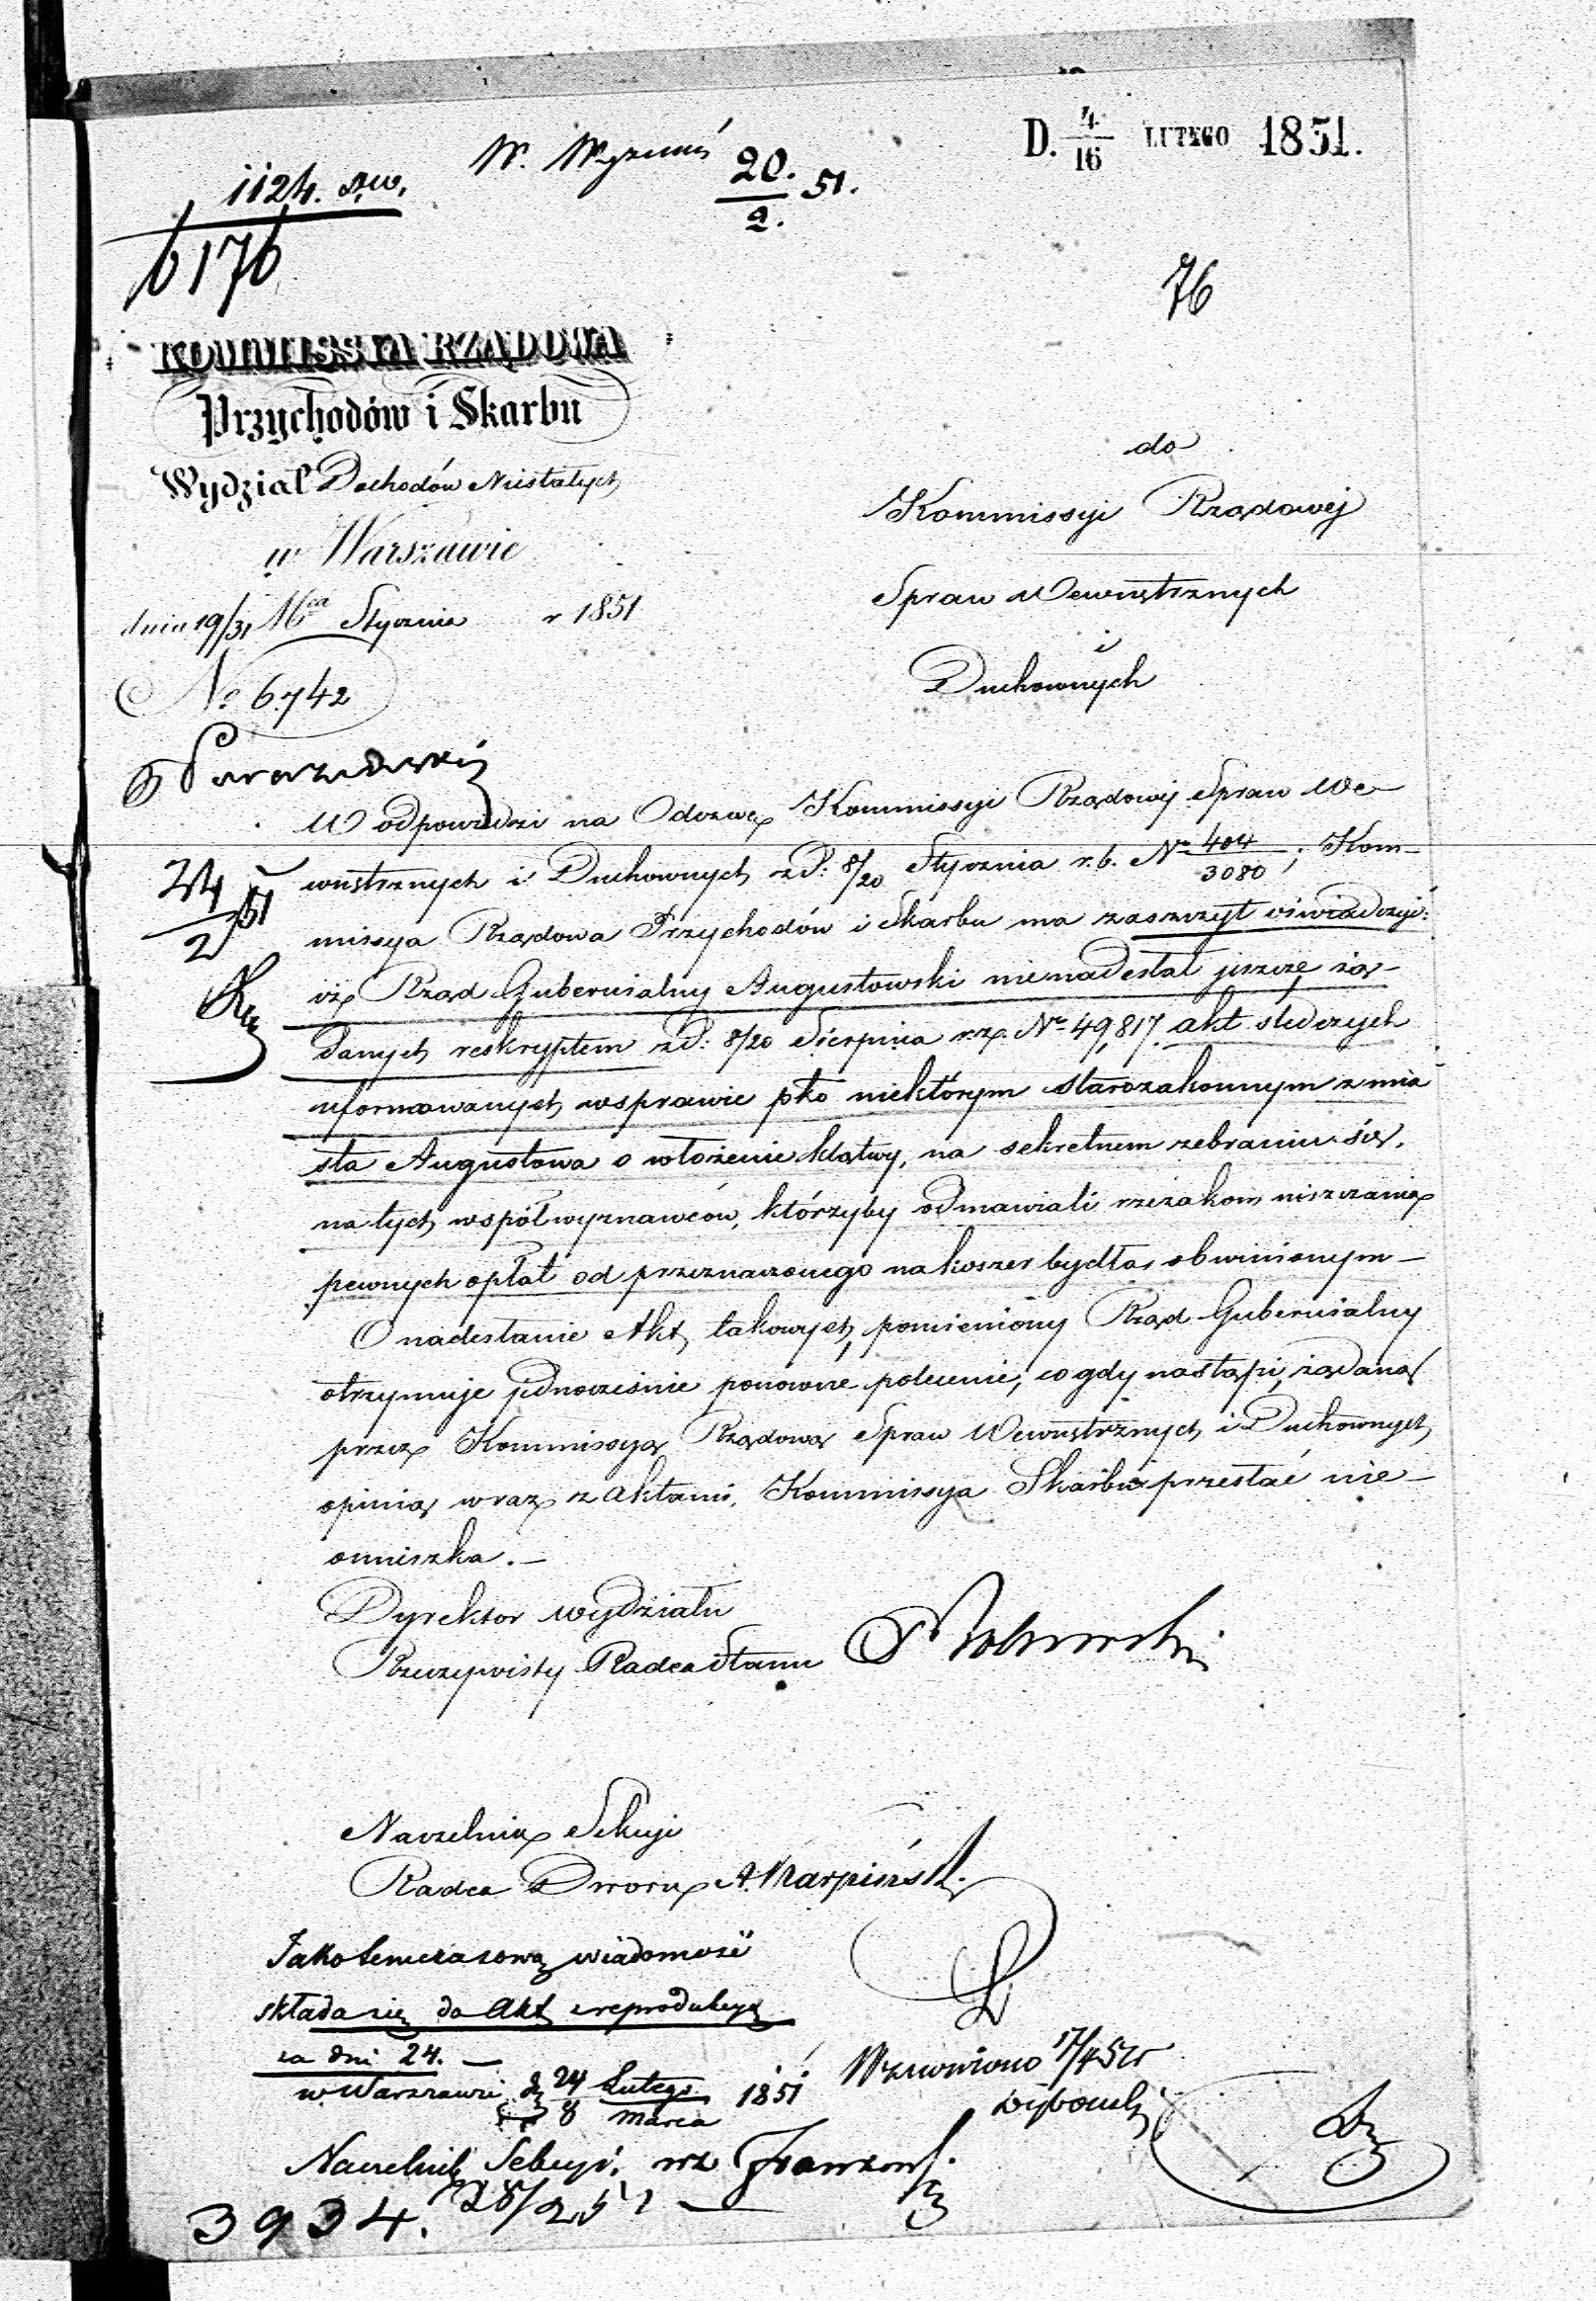 D. 4/16 LUTEGO 1851.
1124. szw.
6176
20./2. 51.
76
KOMMISSYA RZĄDOWA
Przychodów i Skarbu
Wydział Dochodów Niestałych
w Warszawie
dnia 19/31 Mca Stycznia r 1851
No 6742
do
Kommissyi Rządowej
Spraw Wewnętrznych
i
Duchownych
24/2 51
W odpowiedzi na Odezwę Kommissyi Rządowej Spraw We-
wnętrznych i Duchownych z D: 8/20 Stycznia r. b. No 404/3080; Kom-
missya Rządowa Przychodów i Skarbu ma zaszczyt oświadczyć:
iż Rząd Gubernialny Augustowski nienadesłał jeszcze żą-
danych reskryptem z D: 8/20 Sierpnia r.z. No 49,817. akt śledczych
uformowanych wsprawie pko niektórym starozakonnym z mia
sta Augustowa o włożenie klątwy, na sekretnem zebraniu się,
na tych współwyznawców, którzyby odmawiali rzezakom uiszczania
pewnych opłat od przeznaczonego na koszer bydła, obwinionym -
O nadesłanie Akt takowych, pomieniony Rząd Gubernialny
otrzymuje jednocześnie ponowne polecenie, co gdy nastąpi, żądaną
przez Kommissyą Rządową Spraw Wewnętrznych i Duchownych
opinią wraz z aktami, Kommissya Skarbu przesłać nie-
omieszka. -
Dyrektor Wydziału
Rzeczywisty Radca Stanu
Naczelnik Sekcyi
Radca Dworu A. Karpiński
Jako tymczasową wiadomość
składa się do Akt z reprodukcyą
za dni 24. -
w Warszawie d. 24 Lutego/8 Marca 1851
Wznowiono 17/4 51
Naczelnik Sekcyi
3934. 28/2 51